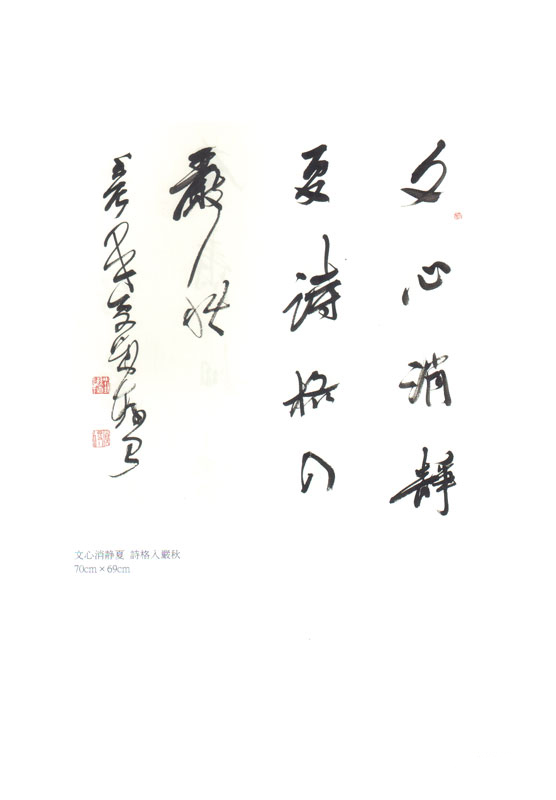 文心消靜
夏詩格入
嚴秋
文心消靜夏 詩格入嚴秋
70cm×69cm